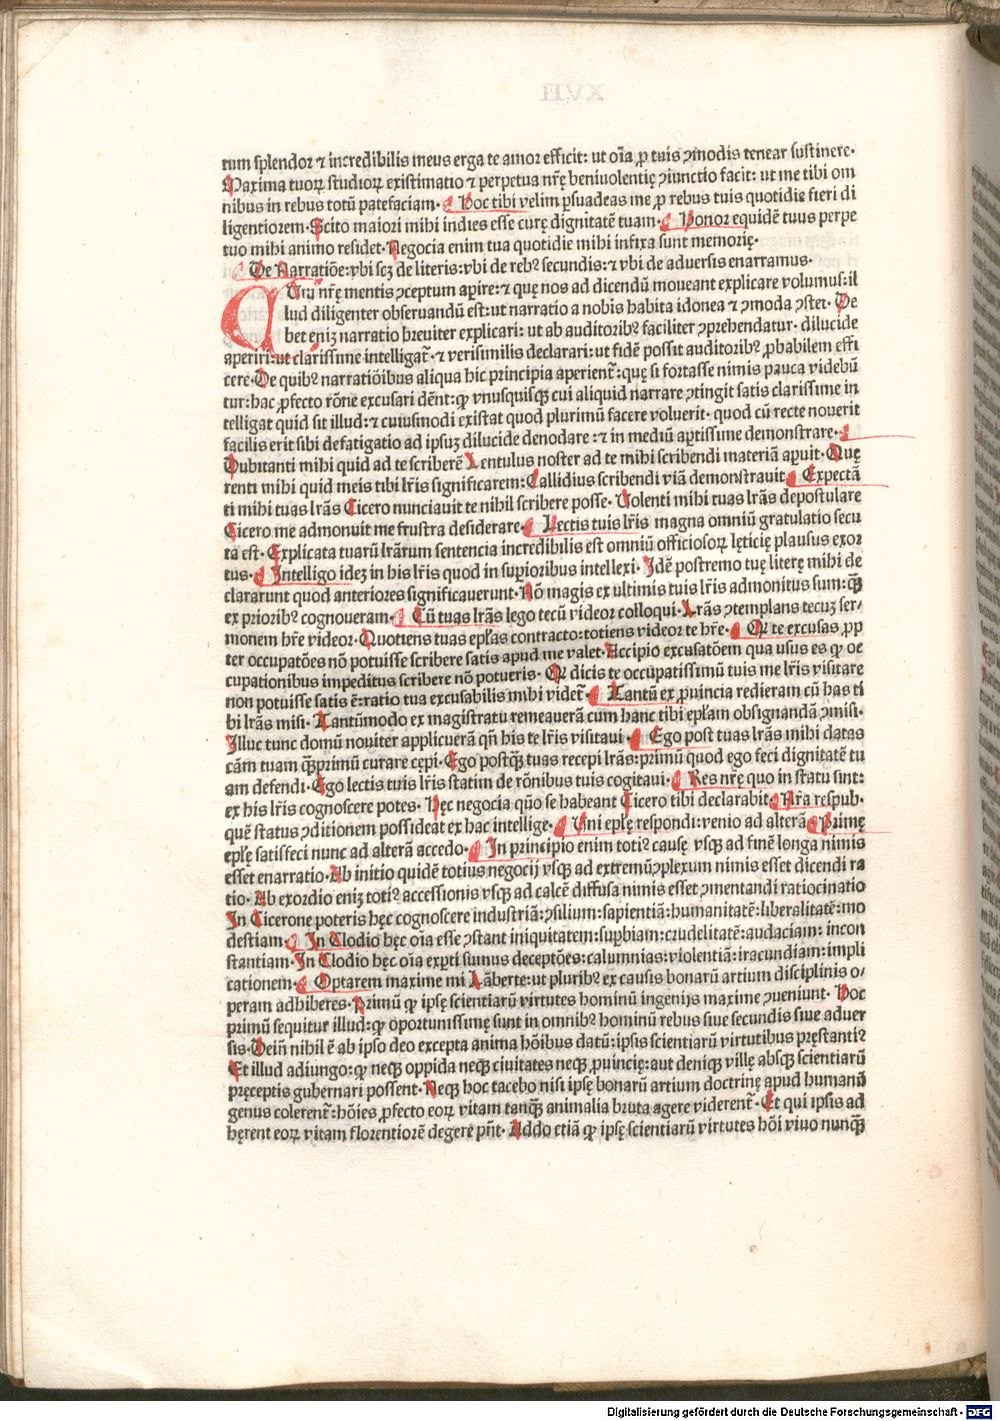 XVII
tum splendor ⁊ incredibilis meus erga te amor efficit: ut oīa ꝓ tuis ꝯmodis tenear sustinere·
Maxima tuoꝝ studioꝝ existimatio ⁊ perpetua nr̄ę beniuolentię ꝯiunctio facit: ut me tibi om
nibus in rebus totū patefaciam· Hoc tibi velim ꝑsuadeas me ꝓ rebus tuis quotidie fieri di
ligentiorem· Scito maiori mihi indies esse curę dignitatē tuam· Honor equidē tuus perpe
tuo mihi animo residet· Negocia enim tua quotidie mihi infixa sunt memorię·
De Narratiōe: vbi scꝫ de literis: vbi de rebꝰ secundis: ⁊ vbi de aduersis enarramus·
Ury nr̄ę mentis ꝯceptum aꝑire: ⁊ quę nos ad dicendū moueant explicare volumus: il
lud diligenter obseruandū est: ut narratio a nobis habita idonea ⁊ ꝯmoda ꝯstet· De
bet eniꝫ narratio breuiter explicari: ut ab auditoribꝰ faciliter ꝯprehendatur· dilucide
aperiri: ut clarissime intelligat᷑· ⁊ verisimilis declarari: ut fidē possit auditoribꝰ ꝓbabilem effi
cere· De quibꝰ narratiōibus aliqua hic principia aperient᷑: quę si fortasse nimis pauca videbū
tur: hac ꝓfecto rōne excusari dēnt: ꝙ vnusquisqꝫ cui aliquid narrare ꝯtingit satis clarissime in
telligat quid sit illud: ⁊ cuiusmodi existat quod plurimū facere voluerit· quod cū recte nouerit
facilis erit sibi defatigatio ad ipsuꝫ dilucide denodare: ⁊ in mediū aꝑtissime demonstrare·
Dubitanti mihi quid ad te scriberē Lentulus noster ad te mihi scribendi materiā aꝑuit· Quę
renti mihi quid meis tibi lr̄is significarem: Callidius scribendi viā demonstrauit Expectā
ti mihi tuas lr̄as Cicero nunciauit te nihil scribere posse· Volenti mihi tuas lr̄as depostulare
Cicero me admonuit me frustra desiderare· Lectis tuis lr̄is magna omniū gratulatio secu
ta est· Explicata tuarū lr̄arum sentencia incredibilis est omniū officiosoꝝ lęticię plausus exor
tus· Intelligo ideꝫ in his lr̄is quod in suꝑioribus intellexi· Idē postremo tuę literę mihi de
clararunt quod anteriores significauerunt· Nō magis ex ultimis tuis lr̄is admonitus sum: qꝫ̄
ex prioribꝰ cognoueram· Cū tuas lr̄as lego tecū videor colloqui· Lr̄as ꝯtemplans tecuꝫ ser⸗
monem hr̄e videor· Quotiens tuas epl̄as contracto: totiens videor te hr̄e· Ꝙ te excusas ꝓp
ter occupatōes nō potuisse scribere satis apud me valet· Accipio excusatōem qua usus es ꝙ oc
cupationibus impeditus scribere nō potueris· Ꝙ dicis te occupatissimū tuis me lr̄is visitare
non potuisse satis ē: ratio tua excusabilis mihi videt᷑· Tantū ex ꝓuincia redieram cū has ti
bi lr̄as misi· Tantūmodo ex magistratu remeauerā cum hanc tibi epl̄am obsignandā ꝯmisi·
Illuc tunc domū nouiter applicuerā qn̄ his te lr̄is visitaui· Ego post tuas lr̄as mihi datas
cām tuam qꝫ̄primū curare cępi· Ego postqꝫ̄ tuas recepi lr̄as: primū quod ego feci dignitatē tu
am defendi· Ego lectis tuis lr̄is statim de rōnibus tuis cogitaui· Res nr̄ę quo in statu sint:
ex his lr̄is cognoscere potes· Hęc negocia quō se habeant Cicero tibi declarabit· Nr̄a respub·
quē status ꝯditionem possideat ex hac intellige· Uni epl̄ę respondi: venio ad alterā Primę
epl̄ę satisfeci nunc ad alterā accedo· In principio enim totiꝰ causę vsqꝫ ad finē longa nimis
esset enarratio· Ab initio quidē totius negocij vsqꝫ ad extremū ꝯplexum nimis esset dicendi ra
tio· Ab exordio eniꝫ totiꝰ accessionis vsqꝫ ad calcē diffusa nimis esset ꝯmentandi ratiocinatio
In Cicerone poteris hęc cognoscere industriā: ꝯsilium: sapientiā: humanitatē: liberalitatē: mo
destiam· In Clodio hęc oīa esse ꝯstant iniquitatem: suꝑbiam: crudelitatē: audaciam: incon
stantiam· In Clodio hęc oīa exꝑti sumus deceptōes: calumnias: violentiā: iracundiam: impli
cationem· Optarem maxime mi Laberte: ut pluribꝰ ex causis bonarū artium disciplinis o⸗
peram adhiberes· Primū ꝙ ipsę scientiarū virtutes hominū ingenijs maxime ꝯueniunt· Hoc
primū sequitur illud: ꝙ oportunissimę sunt in omnibꝰ hominū rebus siue secundis siue aduer
sis· Dein̄ nihil ē ab ipso deo excepta anima hōibus datū: ipsis scientiarū virtutibus pręstantiꝰ
Et illud adiungo: ꝙ neqꝫ oppida neqꝫ ciuitates neqꝫ ꝓuincię: aut deniqꝫ villę absqꝫ scientiarū
pręceptis gubernari possent· Neqꝫ hoc tacebo nisi ipsę bonarū artium doctrinę apud humanū
genus colerent᷑: hōies ꝓfecto eoꝝ vitam tanqꝫ̄ animalia bruta agere viderent᷑· Et qui ipsis ad
hęrent eoꝝ vitam florentiorē degere pn̄t· Addo etiā ꝙ ipsę scientiarū virtutes hōi viuo nunqꝫ̄
Digitalisierung gefördert durch die Deutsche Forschungsgemeinschaft - DFG